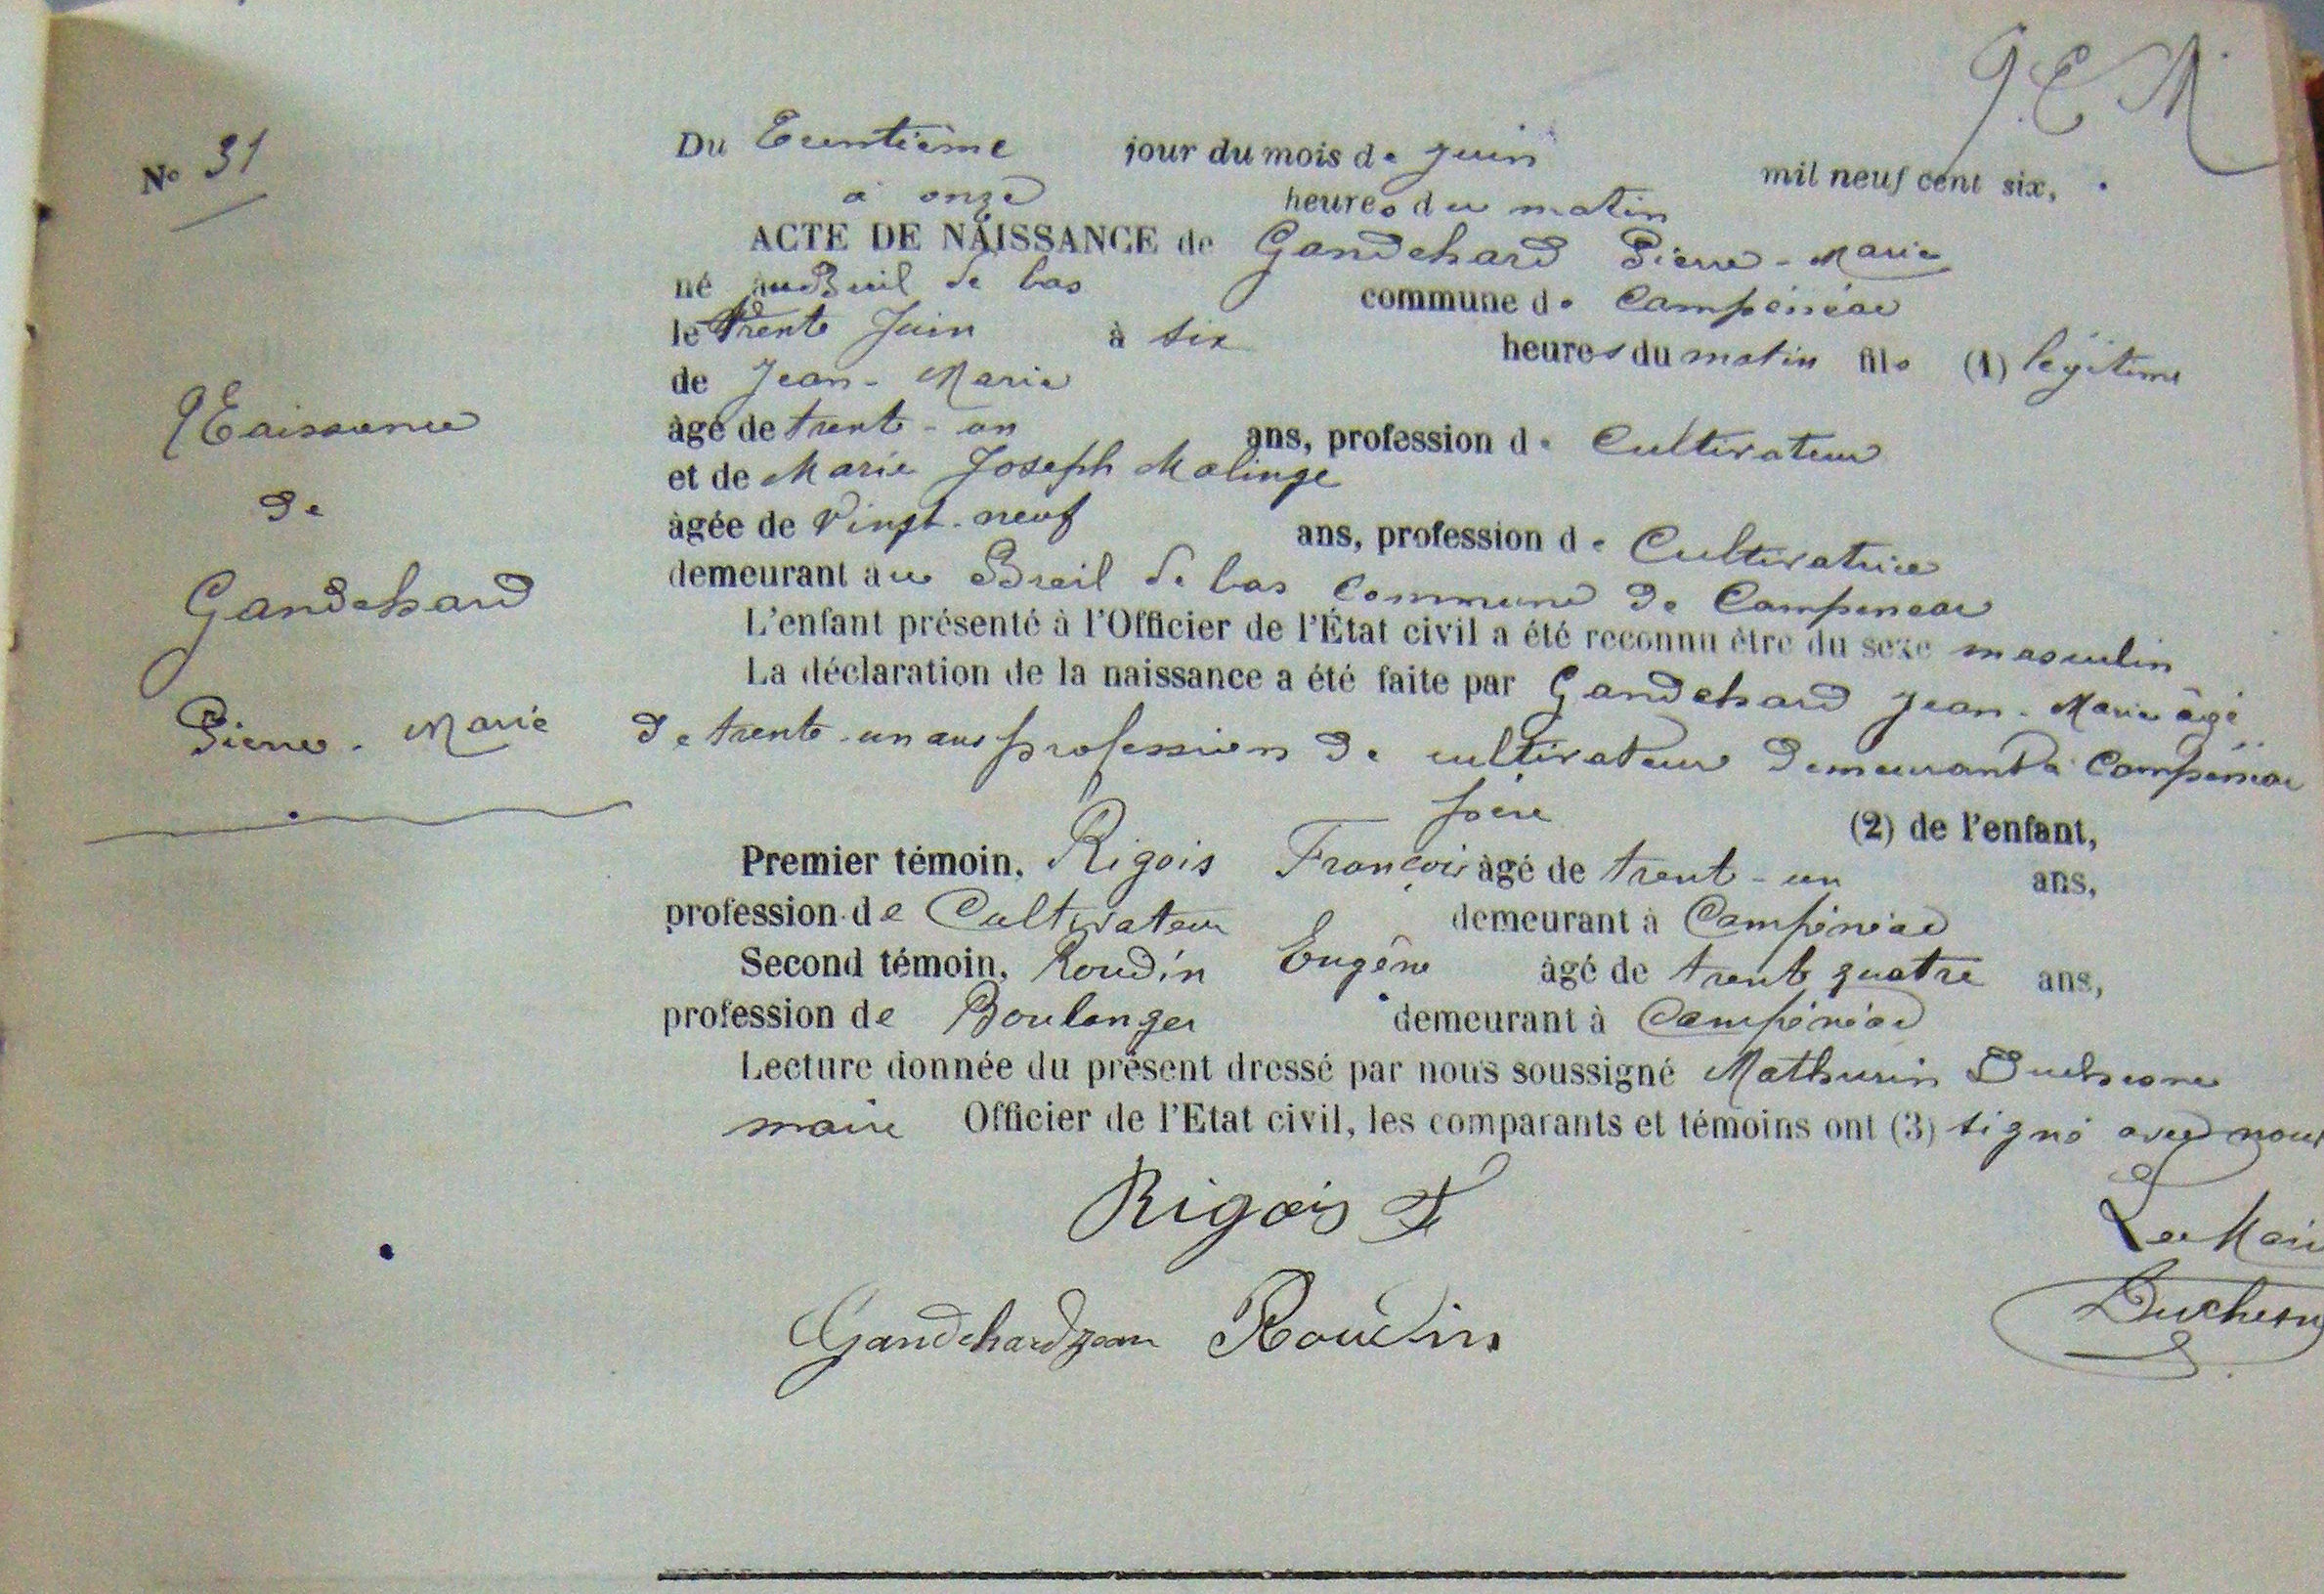 N° 31
Du Trentième jour du mois de Juin mil neuf cent six,
à onze heures du matin
ACTE DE NAISSANCE de Gandehard Pierre-Marie
né au Breil de bas commune de Campénéac
le trente Juin à six heures du matin fils (1) légitime
de Jean-Marie
âgé de trente-un ans, profession de Cultivateur
et de Marie Joseph Malinge
âgée de vingt-neuf ans, profession de Cultivatrice
demeurant au Breil de bas Commune de Campeneac
L'enfant présenté à l'Officier de l'État civil a été reconnu être du sexe masculin
La déclaration de la naissance a été faite par Gandehard Jean-Marie âgé
de trente-un ans profession de cultivateur demeurant à Campénéac
père (2) de l'enfant,
Premier témoin, Rigois François âgé de trente-un ans,
profession de Cultivateur demeurant à Campénéac
Second témoin, Roudin Eugène âgé de trente quatre ans,
profession de Boulanger demeurant à Campénéac
Lecture donnée du présent dressé par nous soussigné Mathurin Duchesne
maire Officier de l'Etat civil, les comparants et témoins ont (3) signé avec nous
Rigois F
Le Mair
Gandehard Jean Roudin
Duchesn
Naissance
de
Gandehard
Pierre-Marie